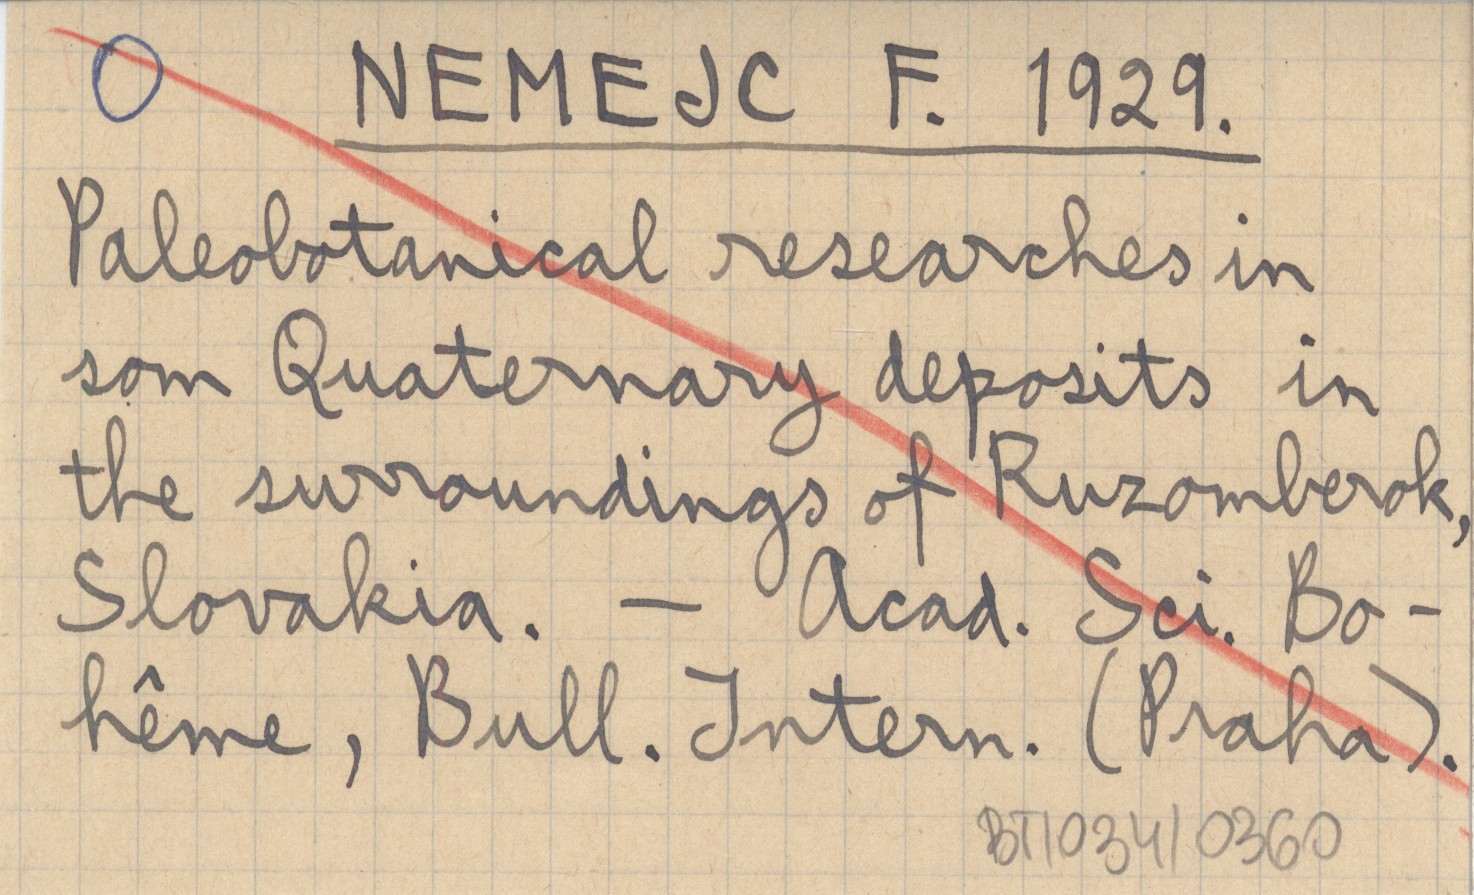 NEMEJC F. 1929.
Paleobotanical researches in
som Quaternary deposits in
the surroundings of Ruzomberok,
Slovakia. — Acad. Sci. Bo-
hême, Bull. Intern. (Praha).
BT/034/0360